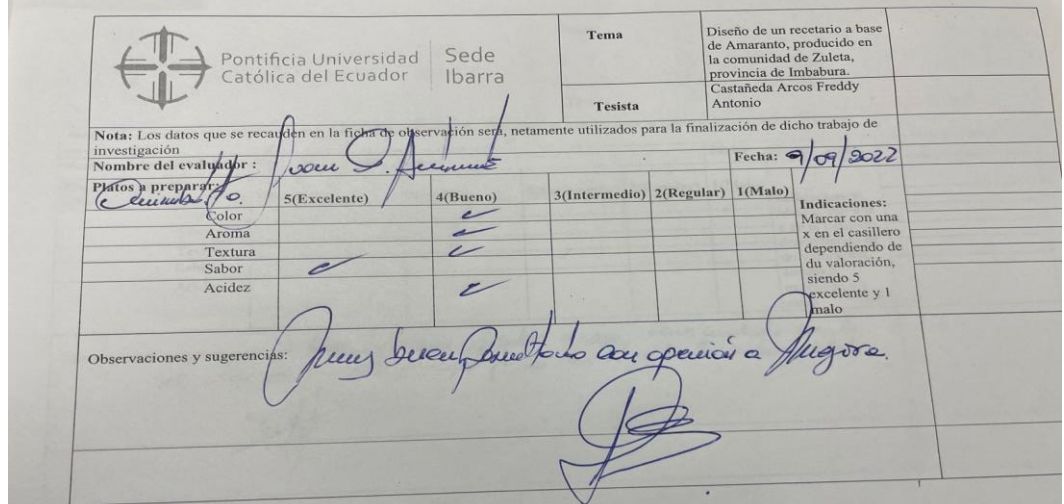 Pontificia Universidad
Católica del Ecuador
Sede
Ibarra
Tema
Diseño de un recetario a base
de Amaranto, producido en
la comunidad de Zuleta,
provincia de Imbabura.
Tesista
Castañeda Arcos Freddy
Antonio
Nota: Los datos que se recauden en la ficha de observación será, netamente utilizados para la finalización de dicho trabajo de
investigación
Nombre del evaluador :
Fecha: 9/09/2022
Platos a preparar:
5(Excelente) 4(Bueno) 3(Intermedio) 2(Regular) 1(Malo)
Color
Aroma
Textura
Sabor
Acidez
Indicaciones:
Marcar con una
x en el casillero
dependiendo de
du valoración,
siendo 5
excelente y 1
malo
Observaciones y sugerencias: Muy buen con a